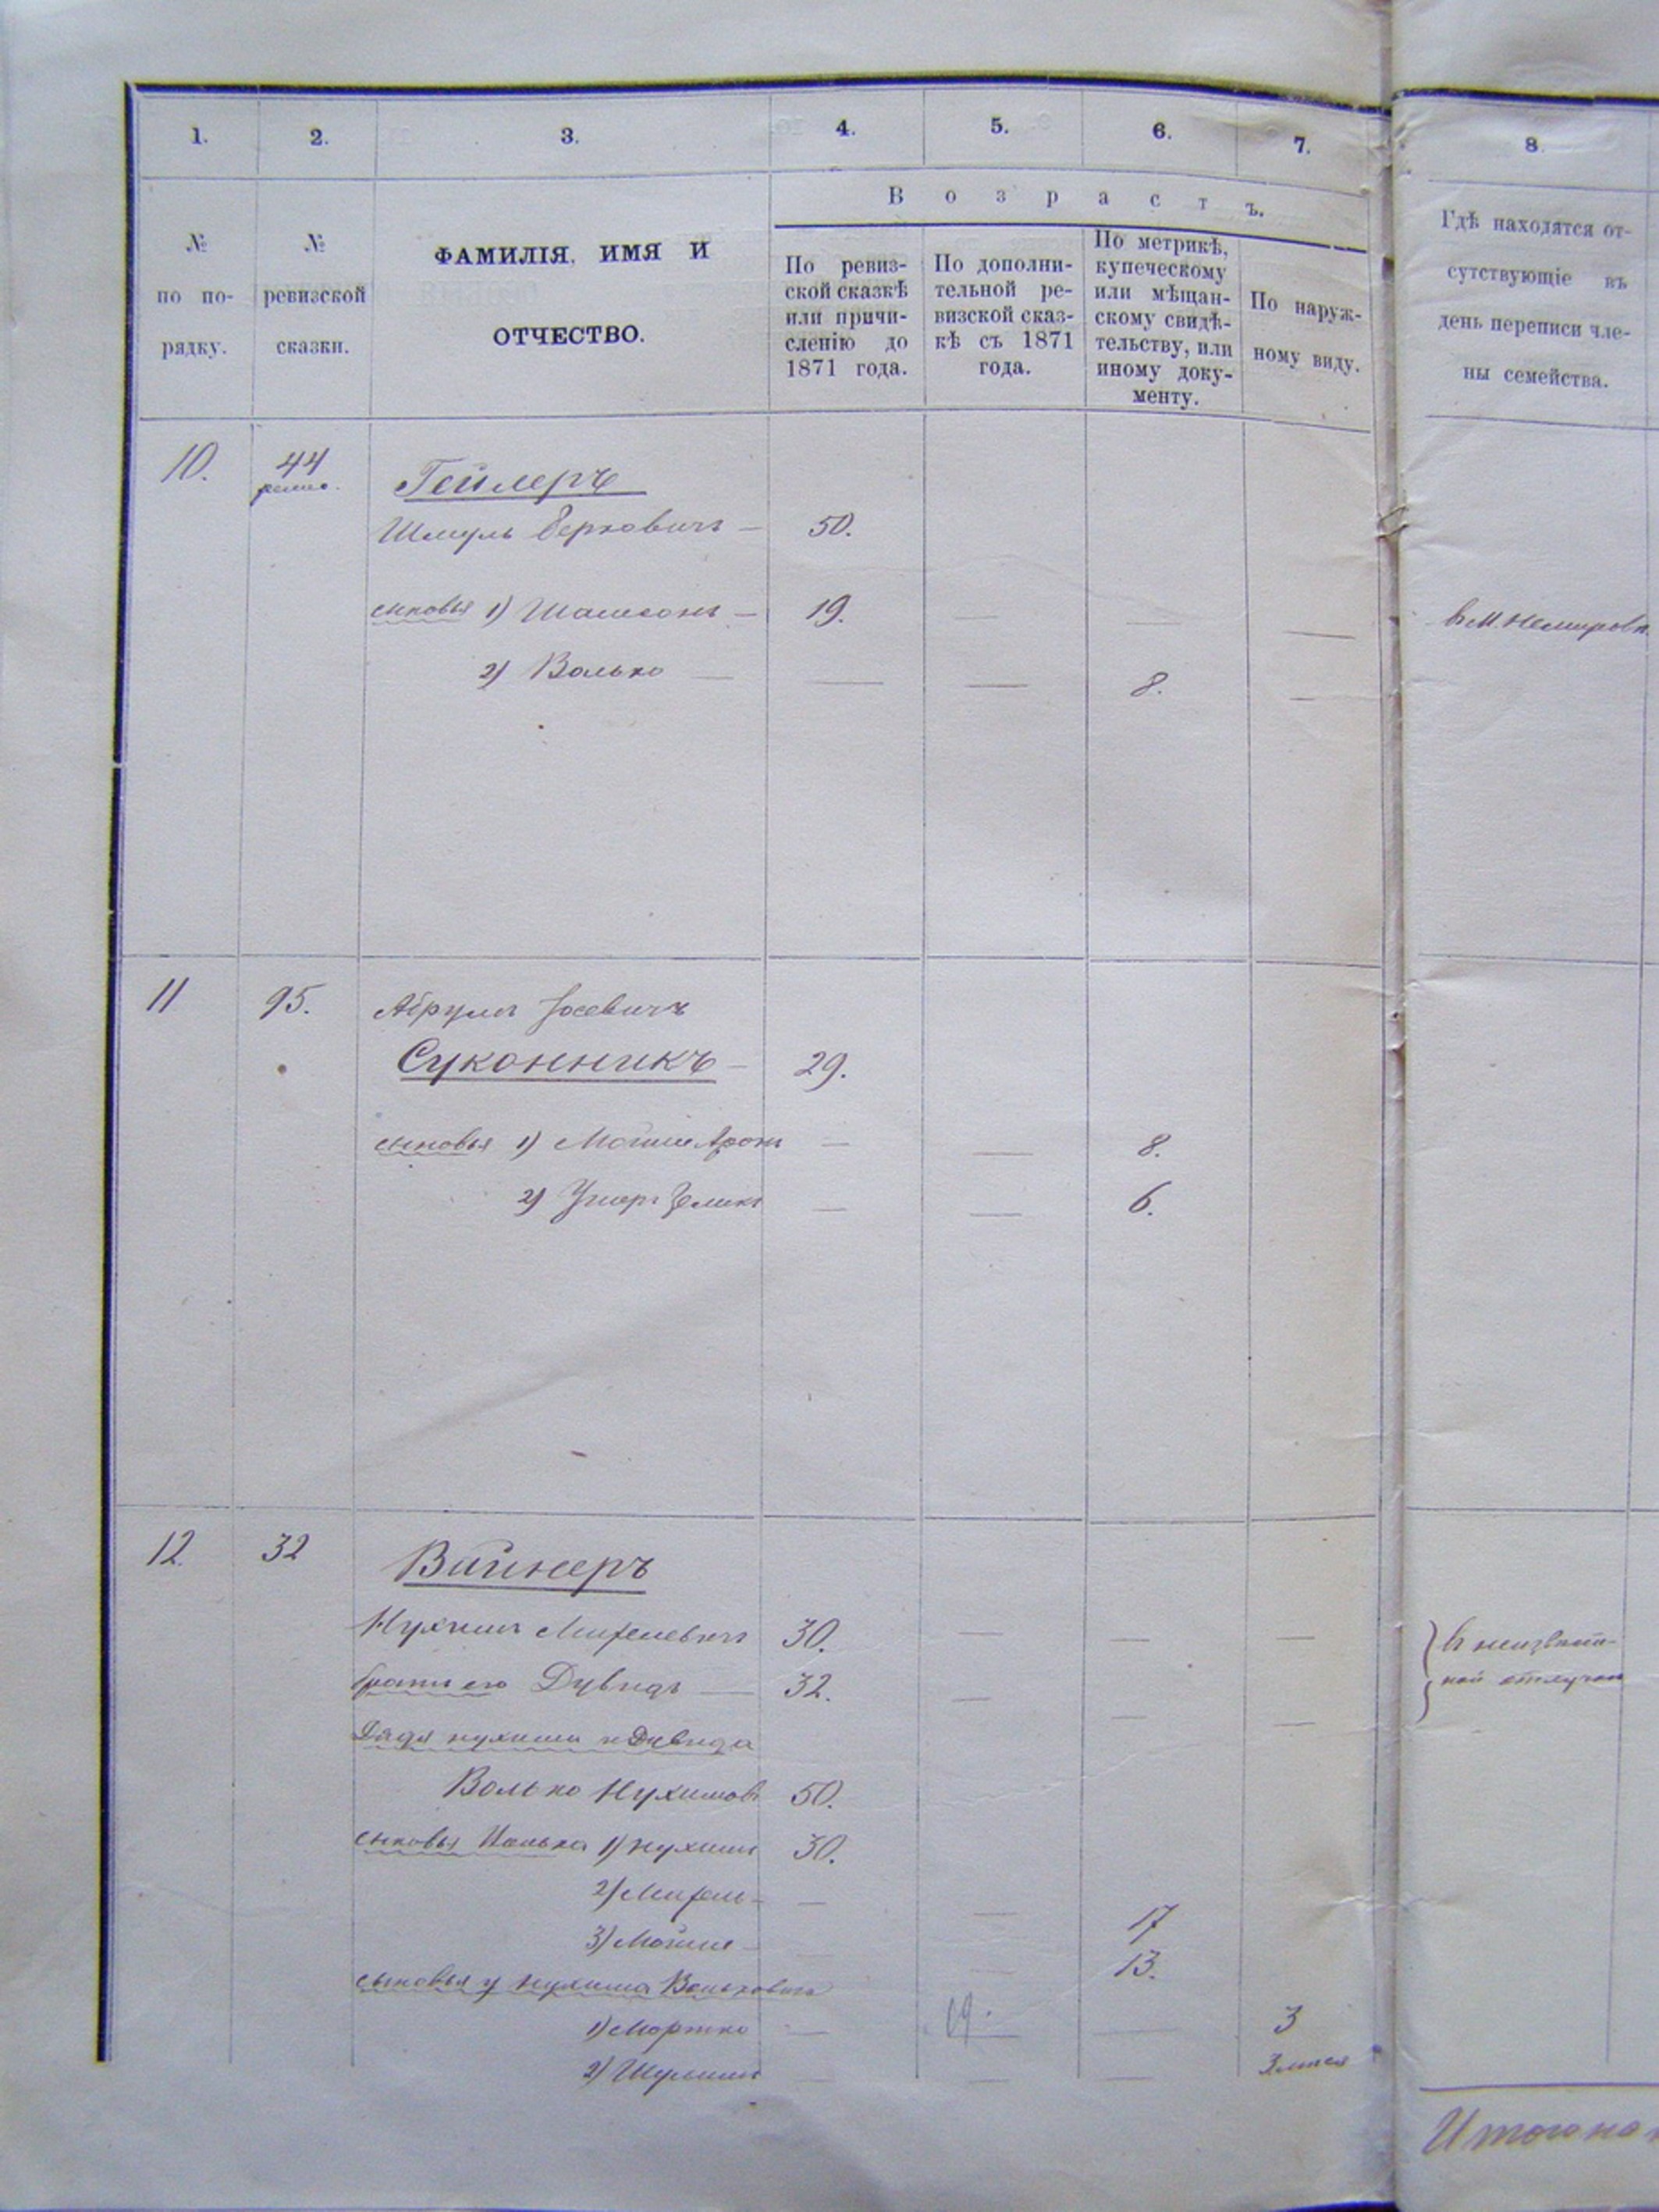 1. 2. 3. 4. 5. 6. 7. 8.
№ по по- рядку.
№ ревизской сказки.
ФАМИЛІЯ, ИМЯ И
ОТЧЕСТВО.
Возрастъ.
По ревиз-
ской сказкѣ
или причи-
сленію до
1871 года.
По дополни-
тельной ре-
визской сказ-
кѣ съ 1871
года.
По метрикѣ,
купеческому
или мѣщан-
скому свидѣ-
тельству, или
иному доку-
менту.
По наруж-
ному виду.
Гдѣ находятся от-
сутствующіе въ
день переписи чле-
ны семейства.
10. 44 Гейлеръ
Шмуль Берковичъ — 50.
сыновья 1) Шамсонъ — 19. — — — в м. Немирове
2) Волько — — — 8. —
11 95. Абрумъ Іосевичъ
Суконникъ — 29.
сыновья 1) Мойше Аронъ — — 8.
2) Ушеръ Зеликъ — — 6.
12. 32 Вайнеръ
Нухимъ 30. — — —
братъ его Дувидъ — 32. — — —
Дядя нухима и Дувида
Волько Нухимовъ 50.
сыновья Волька 1) нухимъ 30.
2) — — 17
3) Мойше — — — 13.
сыновья у нухима Вольковича
1) Мортко — 19. — 3
2) Шулимъ — — — 3 мися
Итого на